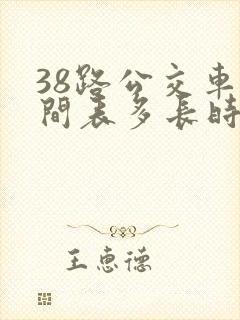 38路公交車
間表多長時
王惠德